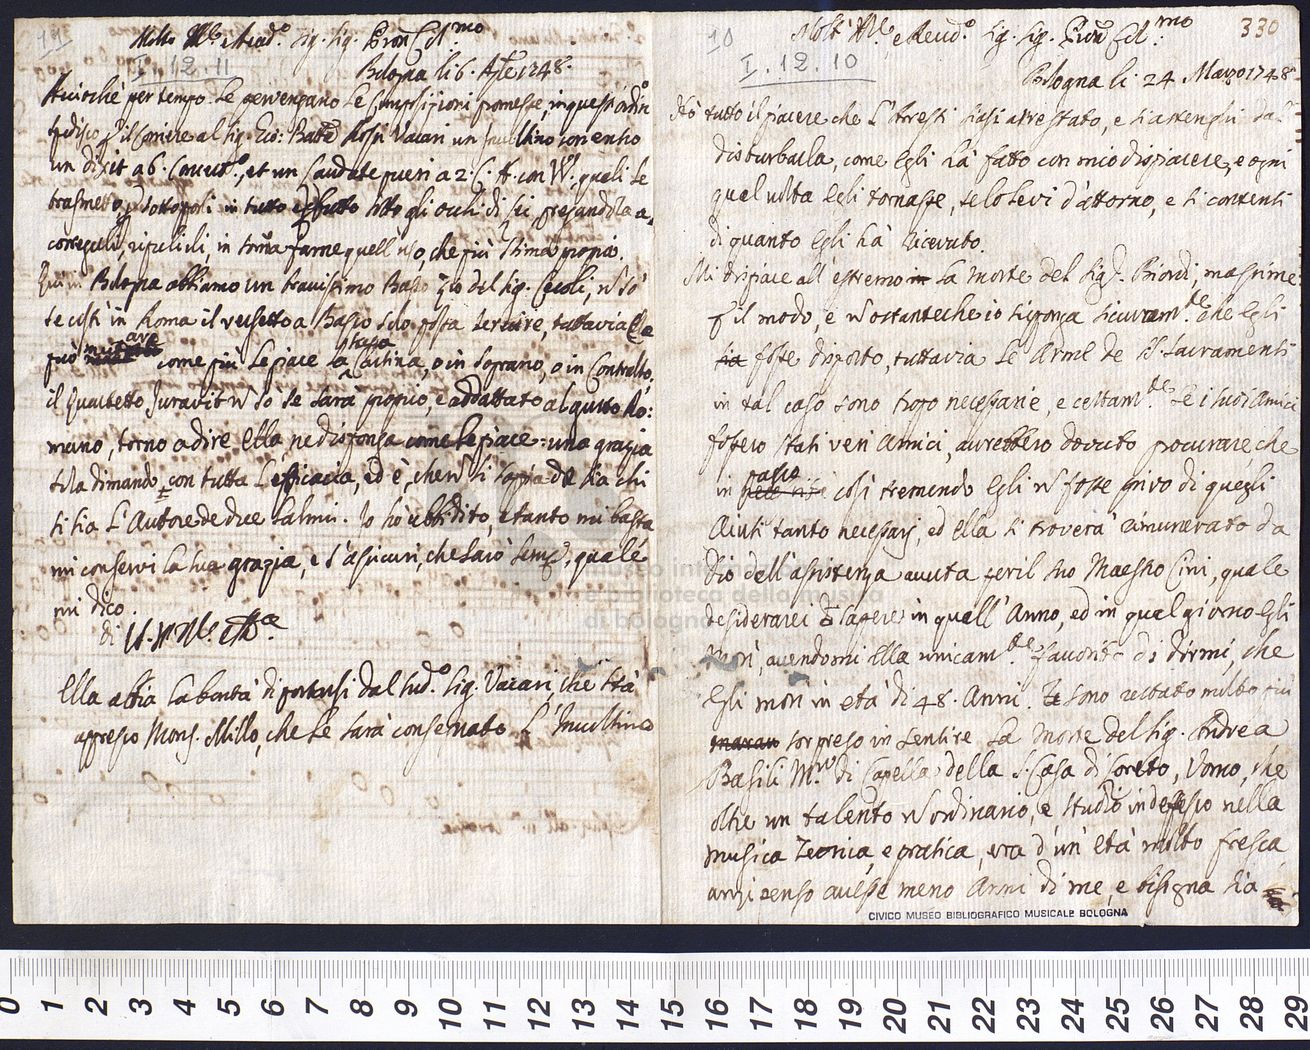 11
I.12.11
Molto Ill.e e Rev.do Sig. Sig. Pron Col.mo
Bologna li 6. Ap.le 1748.
Acciochè per tempo Le pervengano Le Composizioni promesse, in quest'ordin.o
spedisco p il Corriere al Sig. Gio: Batta Rossi Vacari un involtino con entro
un dixit a 6. Concert.o, et un Laudate pueri a 2. C. A. con VV. quali Le
trasmetto, e sottoposti in tutto e p tutto sotto gli occhi di Lei pregandola a
correggerli, ripulirli, in forma farne quell'uso, che più stima proprio.
Qui in Bologna abbiamo un bravissimo Basso Zio del Sig. Cecoli, n so
se costì in Roma il versetto a Basso solo possa servire, tuttavia Ella
può mutare come più Le piace la stessa Cantina, o in Soprano, o in Contralto,
il Quartetto Juravit n so se sarà proprio, e addattato al gusto Ro:
mano, torno a dire Ella ne disponga come Le piace: una grazia
si La dimando con tutta L'efficacia, ed è, che n si sappia de sia chi
si sia L'Autore de due Salmi. Io hò ubbidito, e tanto mi basta
mi conservi La Sua grazia, e s'assicuri, che sarò semp., quale
mi dico
di V. S. M. Ill.e e R.da
Ella abbia La bontà di portarsi dal sud.o Sig. Vacari, che stà
appresso Mons. Millo, che Le sarà consegnato L'Involtino
10
I.12.10
330
Molt'Ill.e e Rend.o Sig. Sig. Pron Col.mo
Bologna li 24 Marzo 1748
Hò tutto il piacere che L'Aresti siasi arrestato, e s'astenghi da
disturbarla, come Egli hà fatto con mio dispiacere, e ogni
qual volta Egli tornasse, se lo Levi d'attorno, e si contenti
di quanto Egli hà ricevuto.
Mi dispiace all'estremo La morte del Sig.r Biordi, massime
p il modo, e n ostante che io supponga sicuram.te che Egli
fosse disposto, tuttavia Le Arme de SS. Sacramenti
in tal caso sono tropo necessarie, e certam.te se i suoi Amici
fossero stati veri Amici, avrebbero dovuto procurare che
in passo così tremendo Egli n fosse privo di quegli
Aiuti tanto necessarj, ed Ella si troverà rimunerato da
Dio dell'assistenza avuta per il suo Maestro Pini, quale
desiderarei sapere in quall'Anno, ed in qual giorno Egli
morì, avendomi Ella unicam.te favorito di dirmi, che
Egli morì in età di 48. Anni. sono restato molto più
sorpreso in sentire La morte del Sig. Andrea
Basili M.ro di Capella della S. Casa di Loreto, Uomo, che
oltre un talento n ordinario, e studio indefesso nella
musica Teorica, e pratica, era d'un'età molto fresca,
anzi penso avesse meno Anni di me, e bisogna sia
museo internazionale
e biblioteca della musica
di bologna
CIVICO MUSEO BIBLIOGRAFICO MUSICALE BOLOGNA
0 1 2 3 4 5 6 7 8 9 10 11 12 13 14 15 16 17 18 19 20 21 22 23 24 25 26 27 28 29